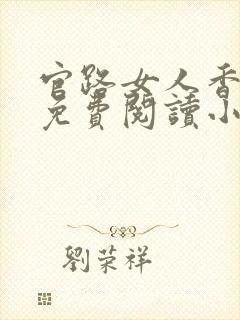 官路女人香
免費閱讀小
劉荣祥